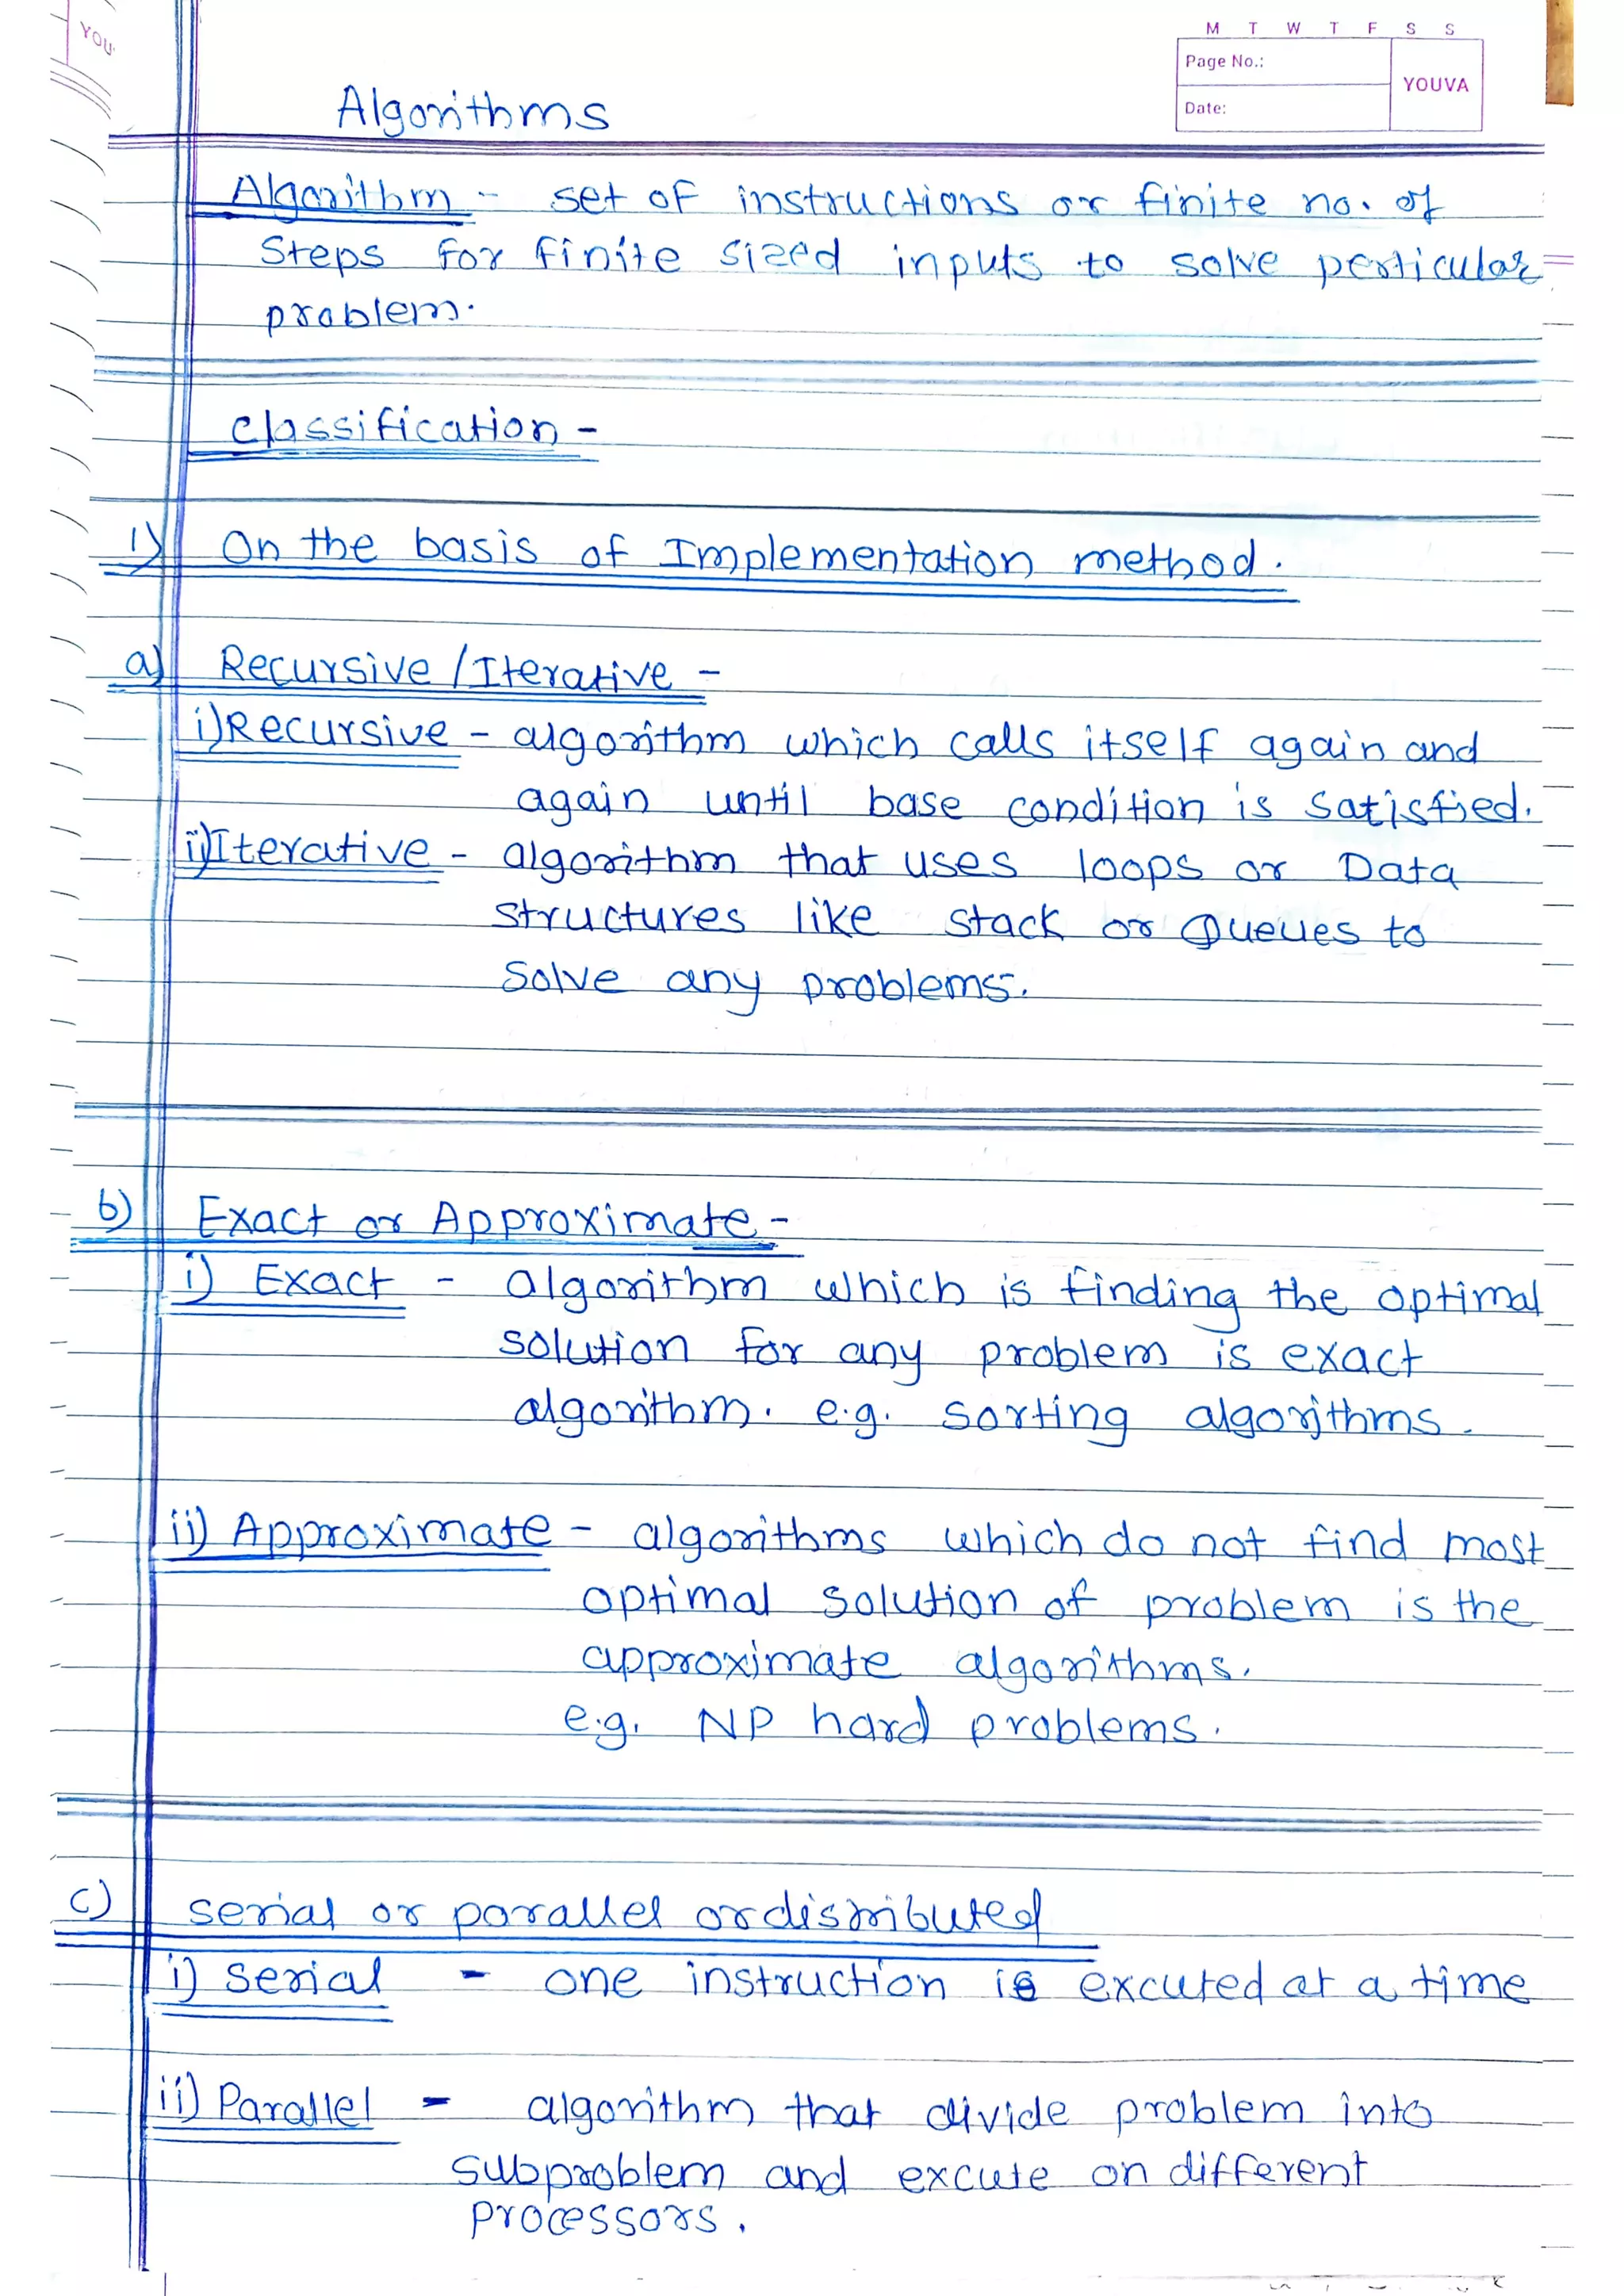 YOU
M T W T F S S
Page No.:
YOUVA
Date:
Algorithms
Algorithm - set of instructions or finite no. of
Steps for finite sized inputs to solve perticular
problem.
classification -
1) On the basis of Implementation method.
a) Recursive / Iterative -
i) Recursive - algorithm which calls itself again and
again until base condition is satisfied.
ii) Iterative - algorithm that uses loops or Data
structures like stack or Queues to
Solve any problems.
b) Exact or Approximate -
i) Exact - algorithm which is finding the optimal
solution for any problem is exact
algorithm. e.g. sorting algorithms.
ii) Approximate - algorithms which do not find most
optimal solution of problem is the
approximate algorithms.
e.g. NP hard problems.
c) serial or parallel or distributed
i) serial - one instruction is excuted at a time
ii) Parallel - algorithm that divide problem into
subproblem and excute on different
processors.